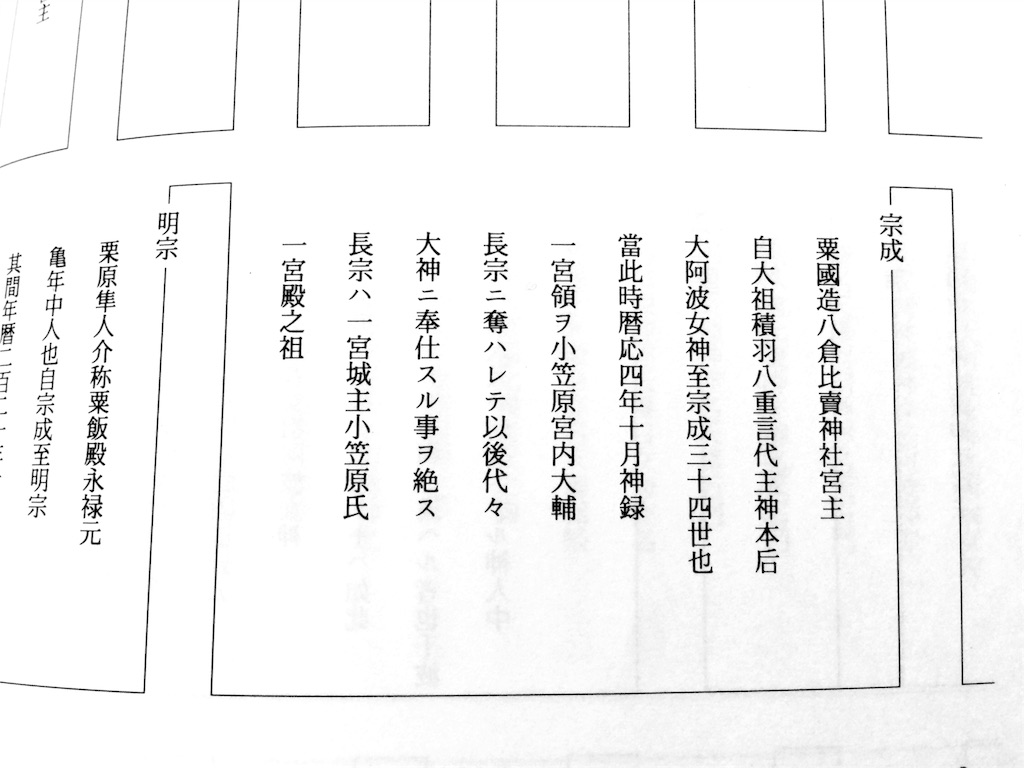 主
宗成
粟國造八倉比賣神社宮主
自大祖積羽八重言代主神本后
大阿波女神至宗成三十四世也
當此時暦応四年十月神録
一宮領ヲ小笠原宮内大輔
長宗ニ奪ハレテ以後代々
大神ニ奉仕スル事ヲ絶ス
長宗ハ一宮城主小笠原氏
一宮殿之祖
明宗
栗原隼人介称粟飯殿永禄元
亀年中人也自宗成至明宗
其間年暦二百二十